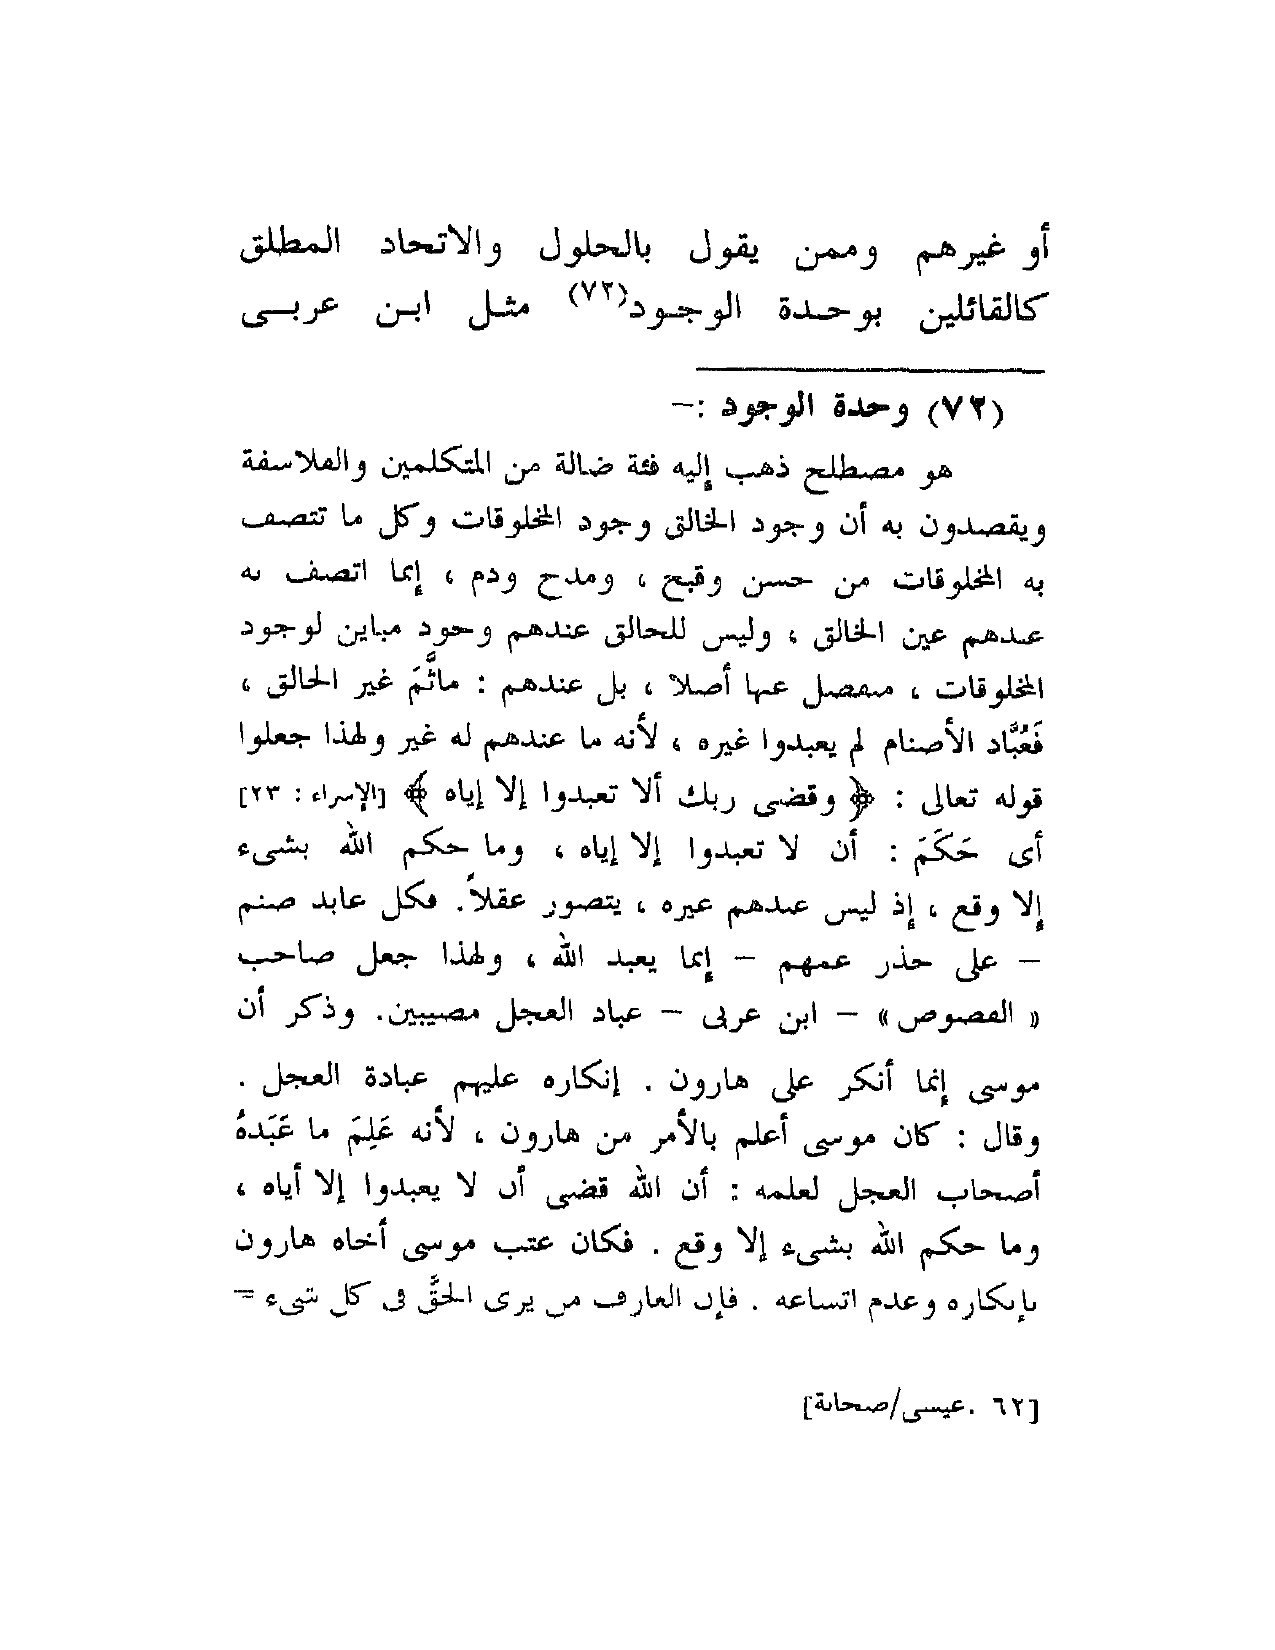 أو غيرهم وممن يقول بالحلول والاتحاد المطلق
كالقائلين بوحدة الوجود(٧٢) مثل ابن عربى
(٧٢) وحدة الوجود :–
هو مصطلح ذهب إليه فئة ضالة من المتكلمين والفلاسفة
ويقصدون به أن وجود الخالق وجود المخلوقات وكل ما تتصف
به المخلوقات من حسن وقبح ، ومدح وذم ، إنما اتصف به
عندهم عين الخالق ، وليس للخالق عندهم وجود مباين لوجود
المخلوقات ، منفصل عنها أصلا ، بل عندهم : ماثَمَّ غير الخالق ،
فَعُبَّاد الأصنام لم يعبدوا غيره ، لأنه ما عندهم له غير ولهذا جعلوا
قوله تعالى : ﴿ وقضى ربك ألا تعبدوا إلا إياه ﴾ [الإسراء : ٢٣]
أى حَكَمَ : أن لا تعبدوا إلا إياه ، وما حكم الله بشىء
إلا وقع ، إذ ليس عندهم غيره ، يتصور عقلاً. فكل عابد صنم
– على حذر عمهم – إنما يعبد الله ، ولهذا جعل صاحب
« الفصوص » – ابن عربى – عباد العجل مصيبين. وذكر أن
موسى إنما أنكر على هارون . إنكاره عليهم عبادة العجل .
وقال : كان موسى أعلم بالأمر من هارون ، لأنه عَلِمَ ما عَبَدَهُ
أصحاب العجل لعلمه : أن الله قضى أن لا يعبدوا إلا أياه ،
وما حكم الله بشىء إلا وقع . فكان عتب موسى أخاه هارون
بإنكاره وعدم اتساعه . فإن العارف من يرى الحقَّ فى كل شىء =
[٦٢ .عيسى/صحابة]